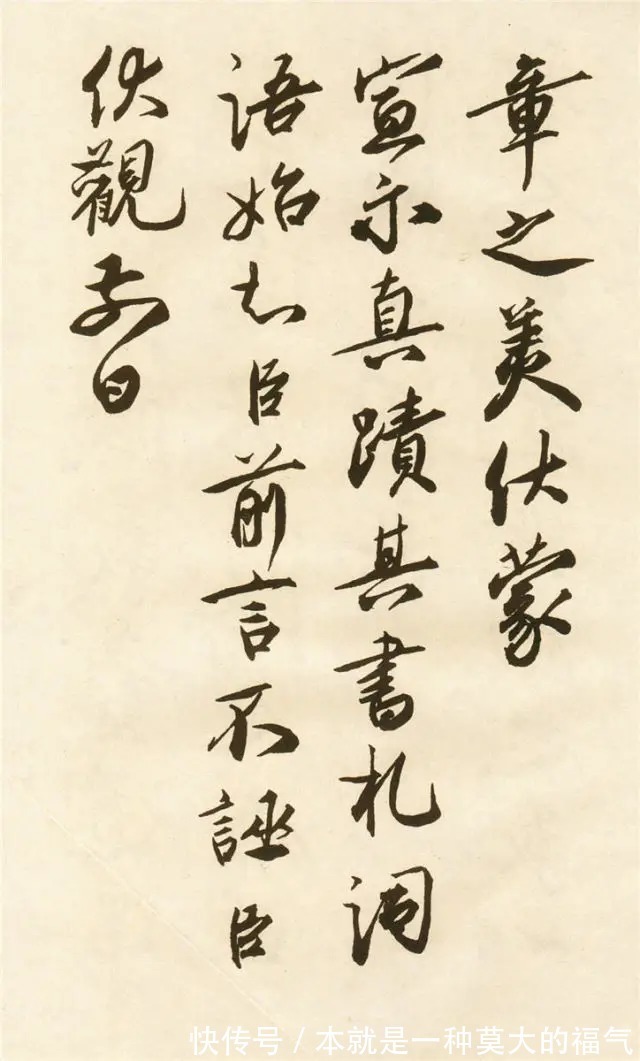 章之美伏蒙
宣示真蹟其書札词
语始知臣前言不誣臣
伏觀前日
快传号 / 本就是一种莫大的福气